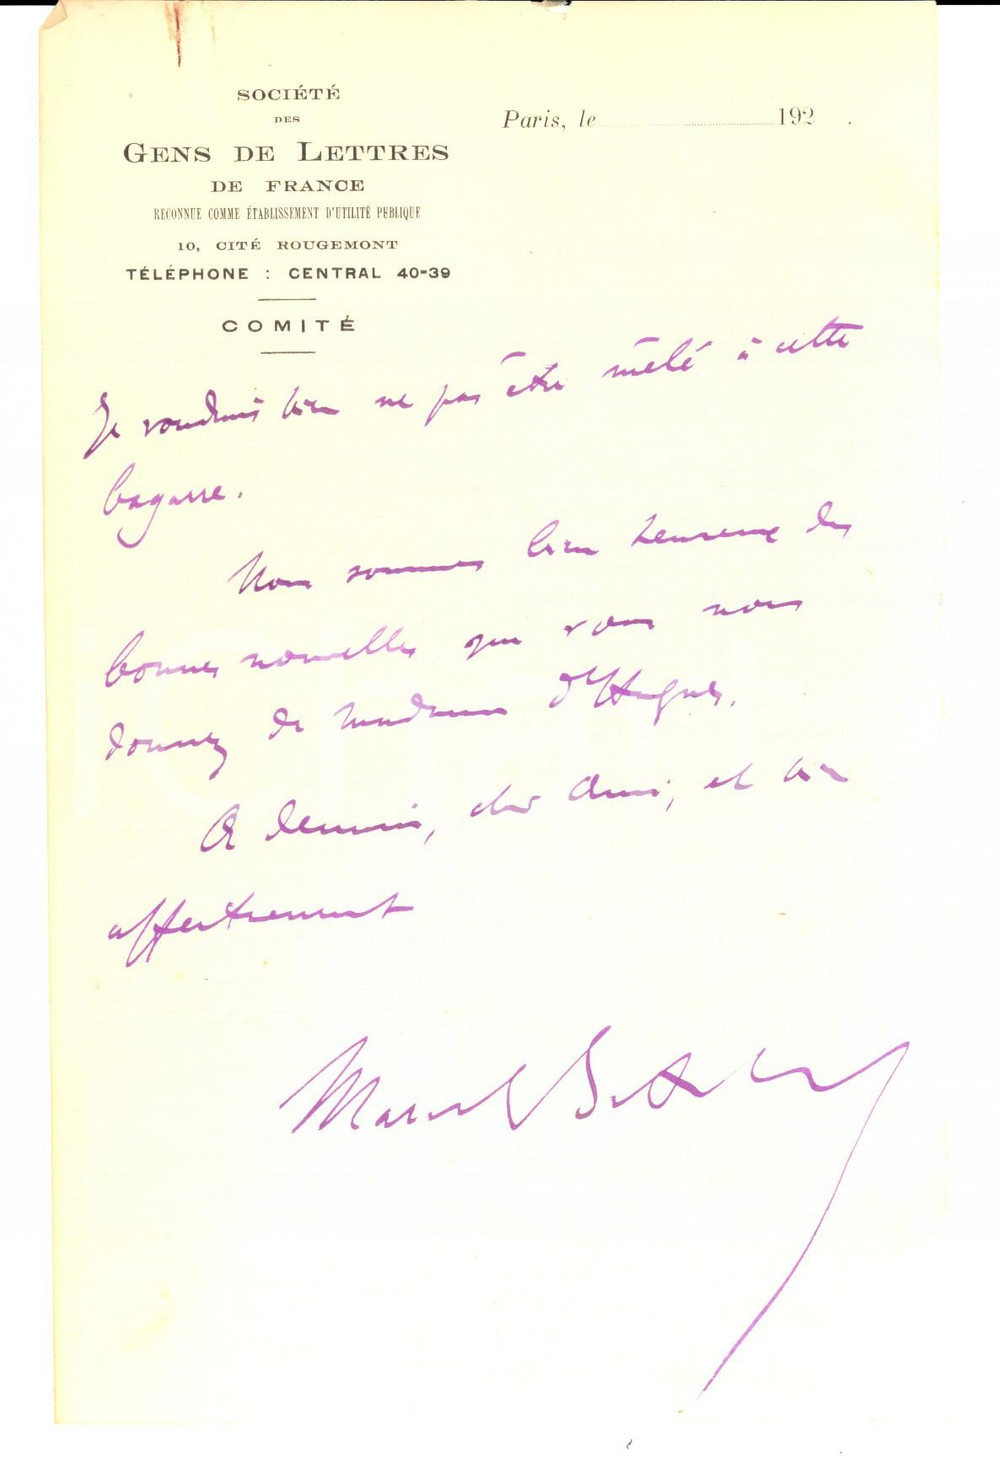 SOCIÉTÉ
DES
GENS DE LETTRES
DE FRANCE
RECONNUE COMME ÉTABLISSEMENT D'UTILITÉ PUBLIQUE
10, CITÉ ROUGEMONT
TÉLÉPHONE : CENTRAL 40-39
COMITÉ
Paris, le 192
Je voudrais bien ne pas être mêlé à cette
bagarre.
Nous sommes bien heureux des
bonnes nouvelles que vous nous
donnez de Madame
A demain, cher Ami, et bien
affectueusement
Marcel